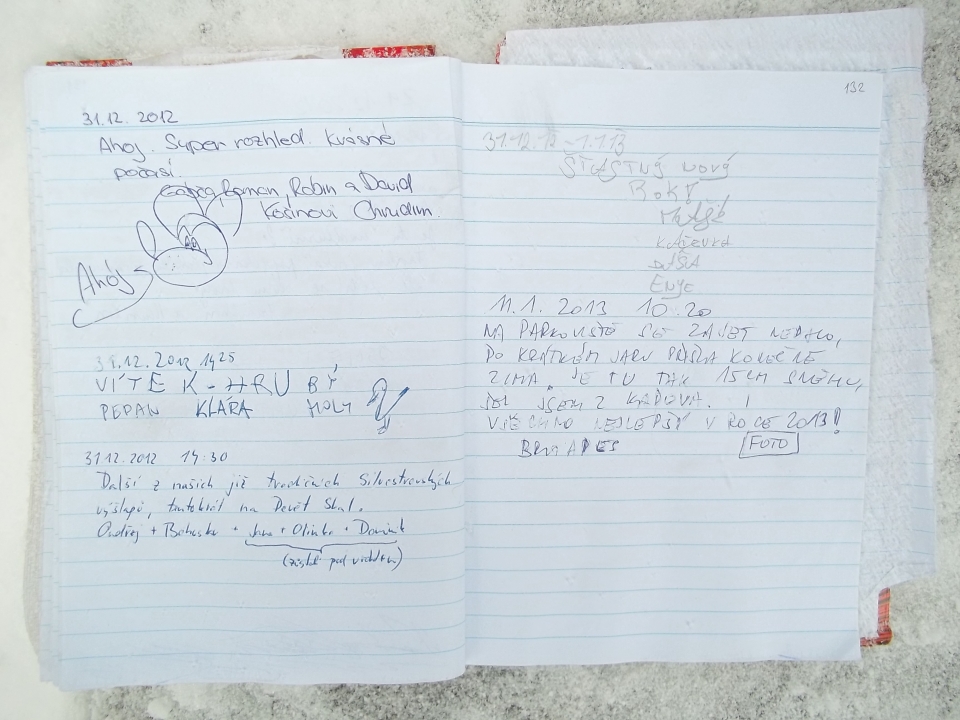 31.12. 2012
Ahoj. Super rozhled. Krásné
počasí.
Roman, Robin a David
Kosinovi Chrudim.
Ahoj
31.12.2012 14 25
VÍTĚ K-HRU BÝ
PEPAN KLÁRA HOLY
31.12.2012 14:30
Další z našich již tradičních Silvestrovských
výšlapů, tentokrát na Devět Skal.
Ondřej + Bohuska + Jana + Olinka + Dominik
(zůstali pod vrcholem)
132
31.12.12 - 1.1.13
ŠŤASTNÝ NOVÝ
ROK
MATĚJ
KAČENKA
DÁŠA
ENYE
11.1. 2013 10:20
NA PARKOVIŠTĚ SE ZAJET NEDALO,
PO KRÁTKÉM JARU PŘIŠLA KONEČNĚ
ZIMA. JE TU TAK 15CM SNĚHU,
ŠEL JSEM Z KADOVA.
VŠECHNO NEJLEPŠÍ V ROCE 2013!
FOTO